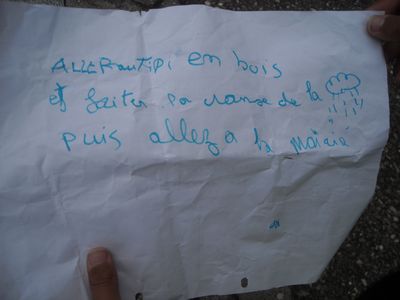 ALLER au TiPi en bois
et faites la danse de la
puis allez a la Mairie